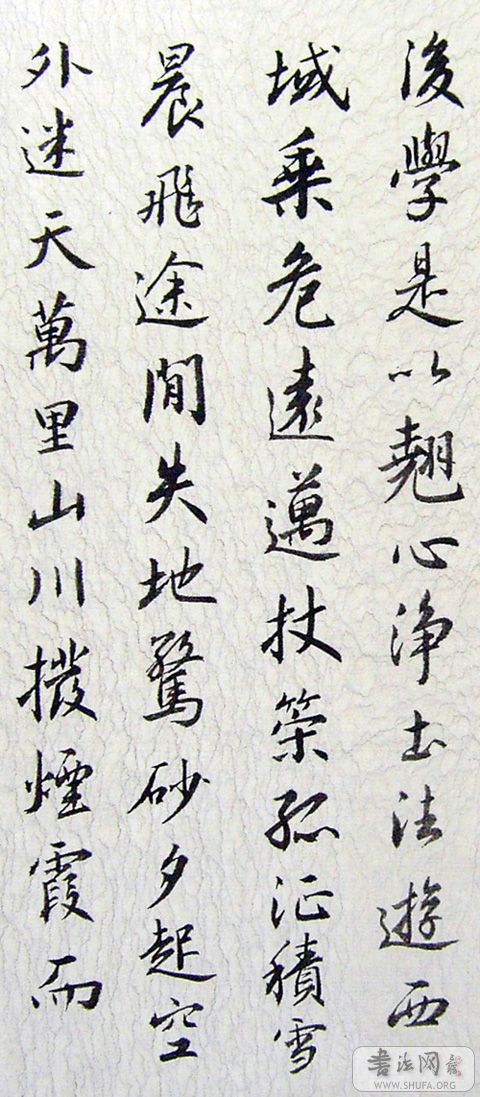 後學是以翹心淨土法遊西
域乗危遠邁杖策孤征積雪
晨飛途間失地驚砂夕起空
外迷天萬里山川撥煙霞而
書法网
WWW.SHUFA.ORG